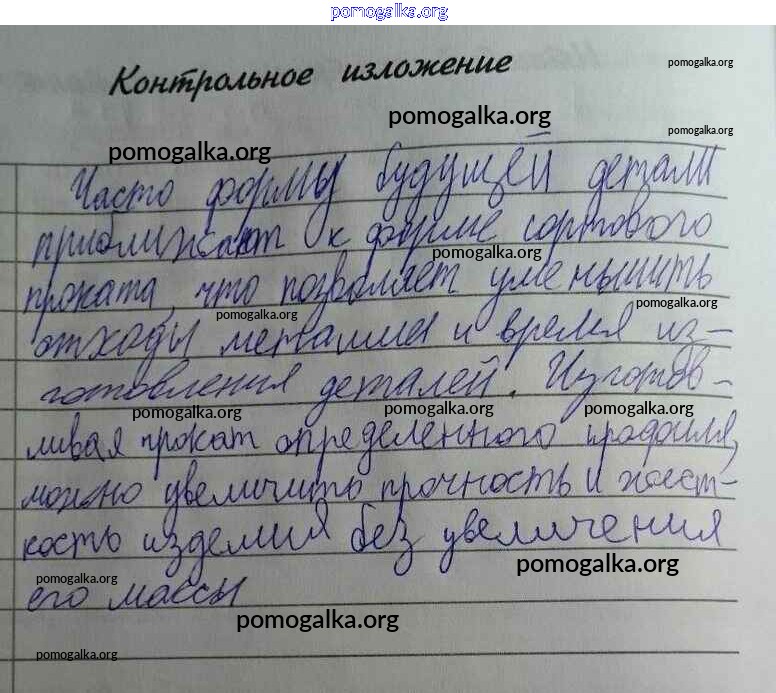 pomogalka.org
Контрольное изложение
pomogalka.org
pomogalka.org
pomogalka.org
pomogalka.org
Часто формы будущей детали
приближают к форме сортового
pomogalka.org
проката, что позволяет уменьшить
pomogalka.org
pomogalka.org
отходы металла и время из-
готовления деталей. Изготов-
pomogalka.org
pomogalka.org
pomogalka.org
ливая прокат определенного профиля,
можно увеличить прочность и жест-
кость изделия без увеличения
pomogalka.org
pomogalka.org
его массы
pomogalka.org
pomogalka.org